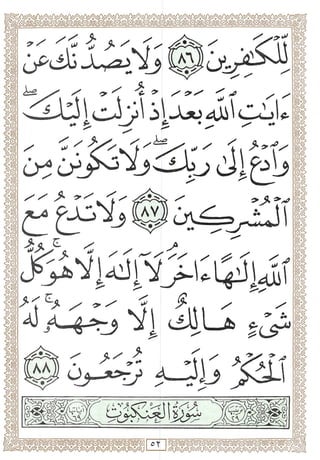 لِّلْكَٰفِرِينَ ٨٦ وَلَا يَصُدُّنَّكَ عَنْ
ءَايَٰتِ ٱللَّهِ بَعْدَ إِذْ أُنزِلَتْ إِلَيْكَ ۖ
وَٱدْعُ إِلَىٰ رَبِّكَ ۖ وَلَا تَكُونَنَّ مِنَ
ٱلْمُشْرِكِينَ ٨٧ وَلَا تَدْعُ مَعَ
ٱللَّهِ إِلَٰهًا ءَاخَرَ ۘ لَآ إِلَٰهَ إِلَّا هُوَ ۚ كُلُّ
شَىْءٍ هَالِكٌ إِلَّا وَجْهَهُۥ ۚ لَهُ
ٱلْحُكْمُ وَإِلَيْهِ تُرْجَعُونَ ٨٨
سُورَةُ الْعَنْكَبُوتِ
٥٢